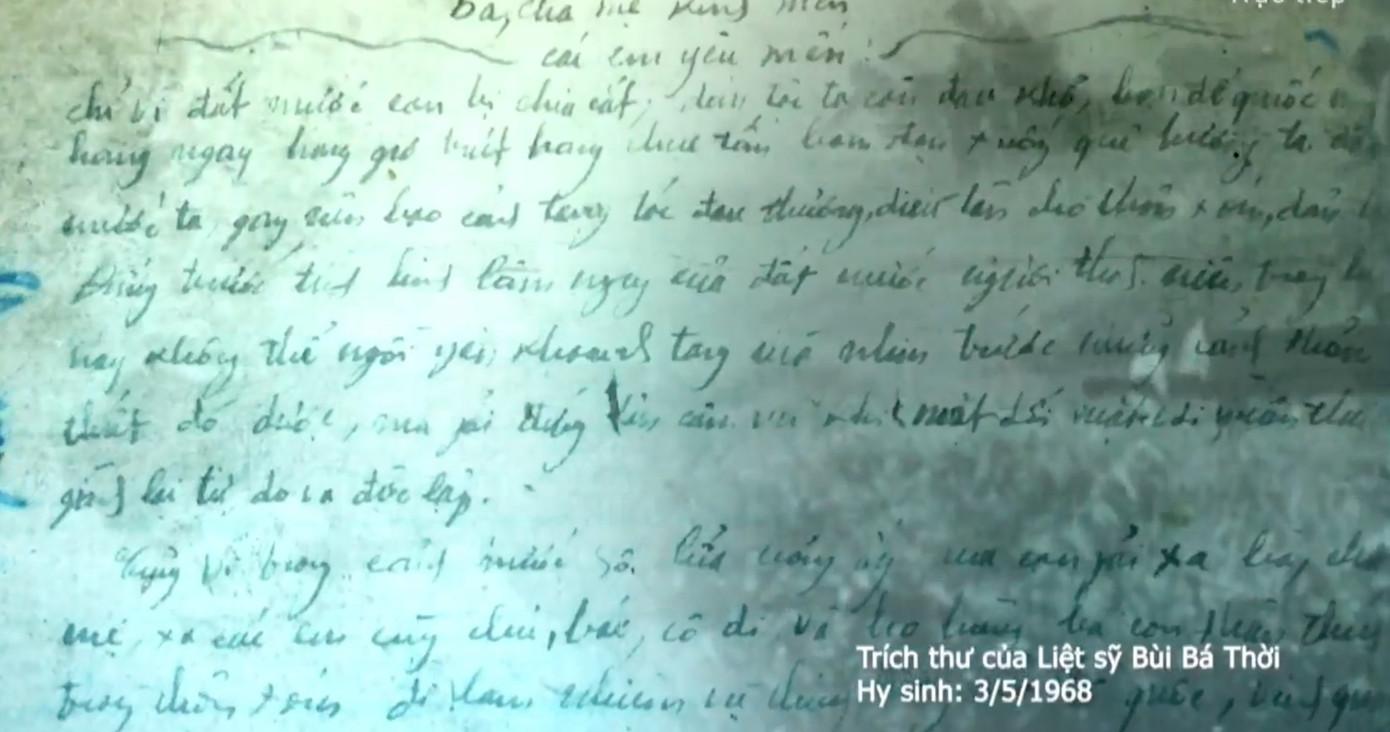 Trực tiếp
Bà, cha mẹ kính mến
các em yêu mến!
chỉ vì đất nước còn bị chia cắt, dân tộc ta còn đau khổ, bọn đế quốc
hàng ngày hàng giờ trút hàng chục tấn bom đạn xuống quê hương ta
nước ta, gây nên bao cảnh tang tóc đau thương, điêu tàn cho thôn xóm,
Đứng trước tình hình lâm nguy của đất nước người thanh niên trong
nay không thể ngồi yên khoanh tay mà nhìn trước những cảnh thảm
thiết đó được, mà phải đứng lên
giành lại tự do và độc lập.
Cũng vì trong cảnh nước sôi lửa bỏng ấy mà con phải xa bà, cha
mẹ, xa các em cùng chú, bác, cô dì và họ hàng bà con thân
trong thôn xóm đi làm nhiệm vụ
Trích thư của Liệt sỹ Bùi Bá Thời
Hy sinh: 3/5/1968